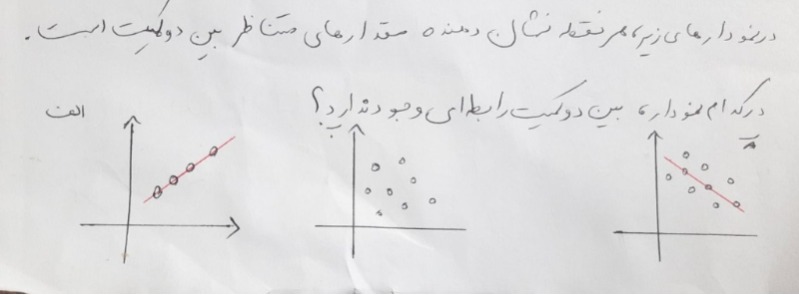 در نمودارهای زیر، هر نقطه نشان دهنده مقدارهای متناظر بین دو کمیت است.
در کدام نمودار، بین دو کمیت رابطه‌ای وجود ندارد؟
الف